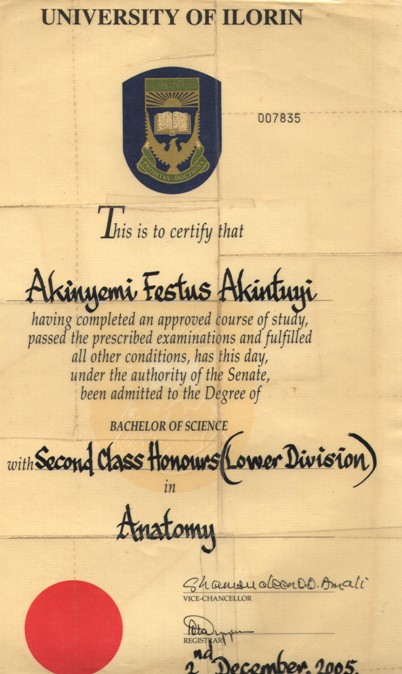 UNIVERSITY OF ILORIN
007835
This is to certify that
Akinyemi Festus Akintuyi
having completed an approved course of study,
passed the prescribed examinations and fulfilled
all other conditions, has this day,
under the authority of the Senate,
been admitted to the Degree of
BACHELOR OF SCIENCE
with Second Class Honours (Lower Division)
in
Anatomy
VICE-CHANCELLOR
REGISTRAR
2nd December, 2005.